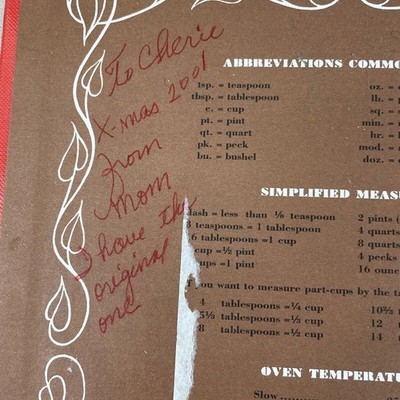 To Cherie
X-mas 2001
from
Mom
I have the
original
one
ABBREVIATIONS COMMO
tsp. = teaspoon
tbsp. = tablespoon
c. = cup
pt. = pint
qt. = quart
pk. = peck
bu. = bushel
oz. =
lb. =
sq. =
min. =
hr. =
mod. =
doz. =
SIMPLIFIED MEASU
dash = less than ⅛ teaspoon
3 teaspoons = 1 tablespoon
16 tablespoons = 1 cup
cup = ½ pint
cups = 1 pint
2 pints (
4 quarts
8 quarts
4 pecks
16 ounc
If you want to measure part-cups by the t
4 tablespoons = ¼ cup
5⅓ tablespoons = ⅓ cup
8 tablespoons = ½ cup
10⅔
12
14
OVEN TEMPERATU
Slow